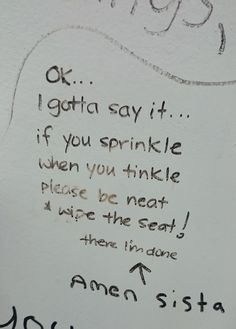 OK...
I gotta say it...
if you sprinkle
when you tinkle
please be neat
& wipe the seat!
there I'm done
Amen sista